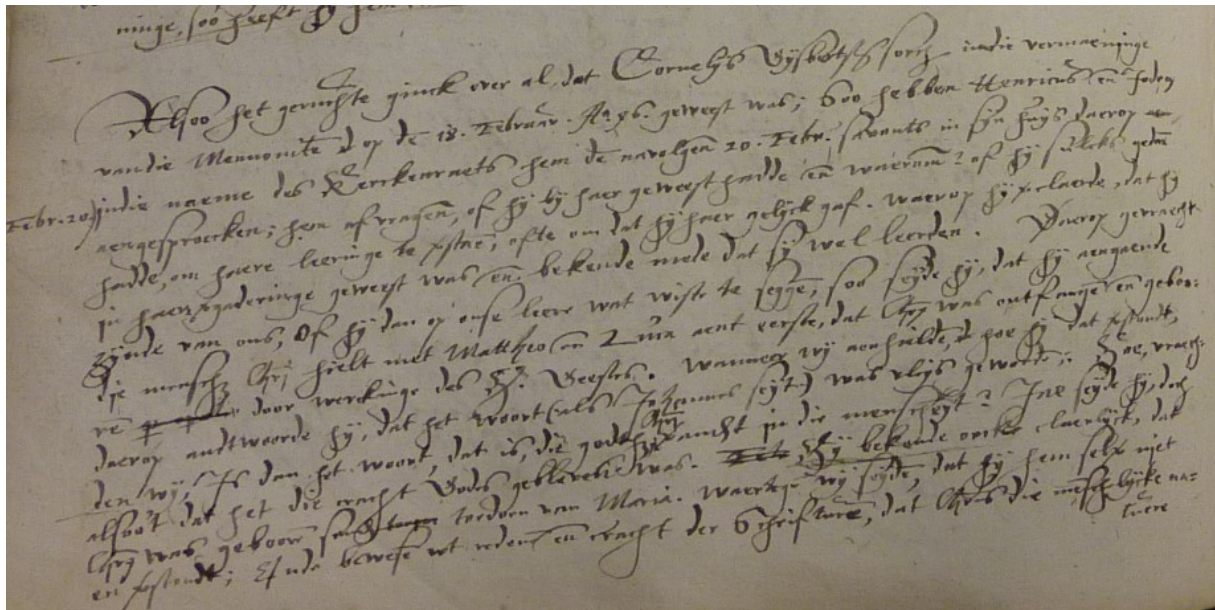 ninge, soo heeft hy hem
Alsoo het geruchte ginck over al, dat Cornelis Gysbertsz sorch in die vermaeninge
van die Mennonite op de 18. Februar. Ao 96. geweest was; Soo hebben Henricus en Jodocus
Febr. 20. in die naeme des Kerckenraets hem de navolgen 20. Febr. savants in syn huys daerop
aengesproecken; hem afvragen, of hy by haer geweest hadde en waerum? of hy sulcks gedaen
hadde, om haere leeringe te verstae, ofte om dat hy haer gelyck gaf. Waerop hy verclaerde, dat hy
in haer vergaderinge geweest was en bekende mede dat sy wel leerden. Daerop gevraecht
zynde van ons, Of hy dan op onse leere wat wiste te seggen, soo seyde hy, dat hy aengaende
die mensch. Chri hielt met Mattheo en Luca aent eerste, dat Chrs was ontfangen en geboo-
ren door werckinge des H. Geestes. Wanneer wy aenhielden, hoe hy dat verstondt,
daerop andtwoorde hy, dat het woort (als Johannes seyt) was vlys geworde; Hoe, vraech-
den wy, Is dan het woort, dat is, die godtheyt Chri verandert in die menscheyt? Jae seyde hy, doch
alsoo't dat het die cracht Godes gebleven was. Hy bekende oock claerlyck, dat
Chrs was geboore sonder toedoen van Maria. Waertegen wy seyden, dat hy hem self niet
en verstondt; Ende bewesen wt redene en cracht der Schrifture, dat Chrs die menschlycke na-
tuere